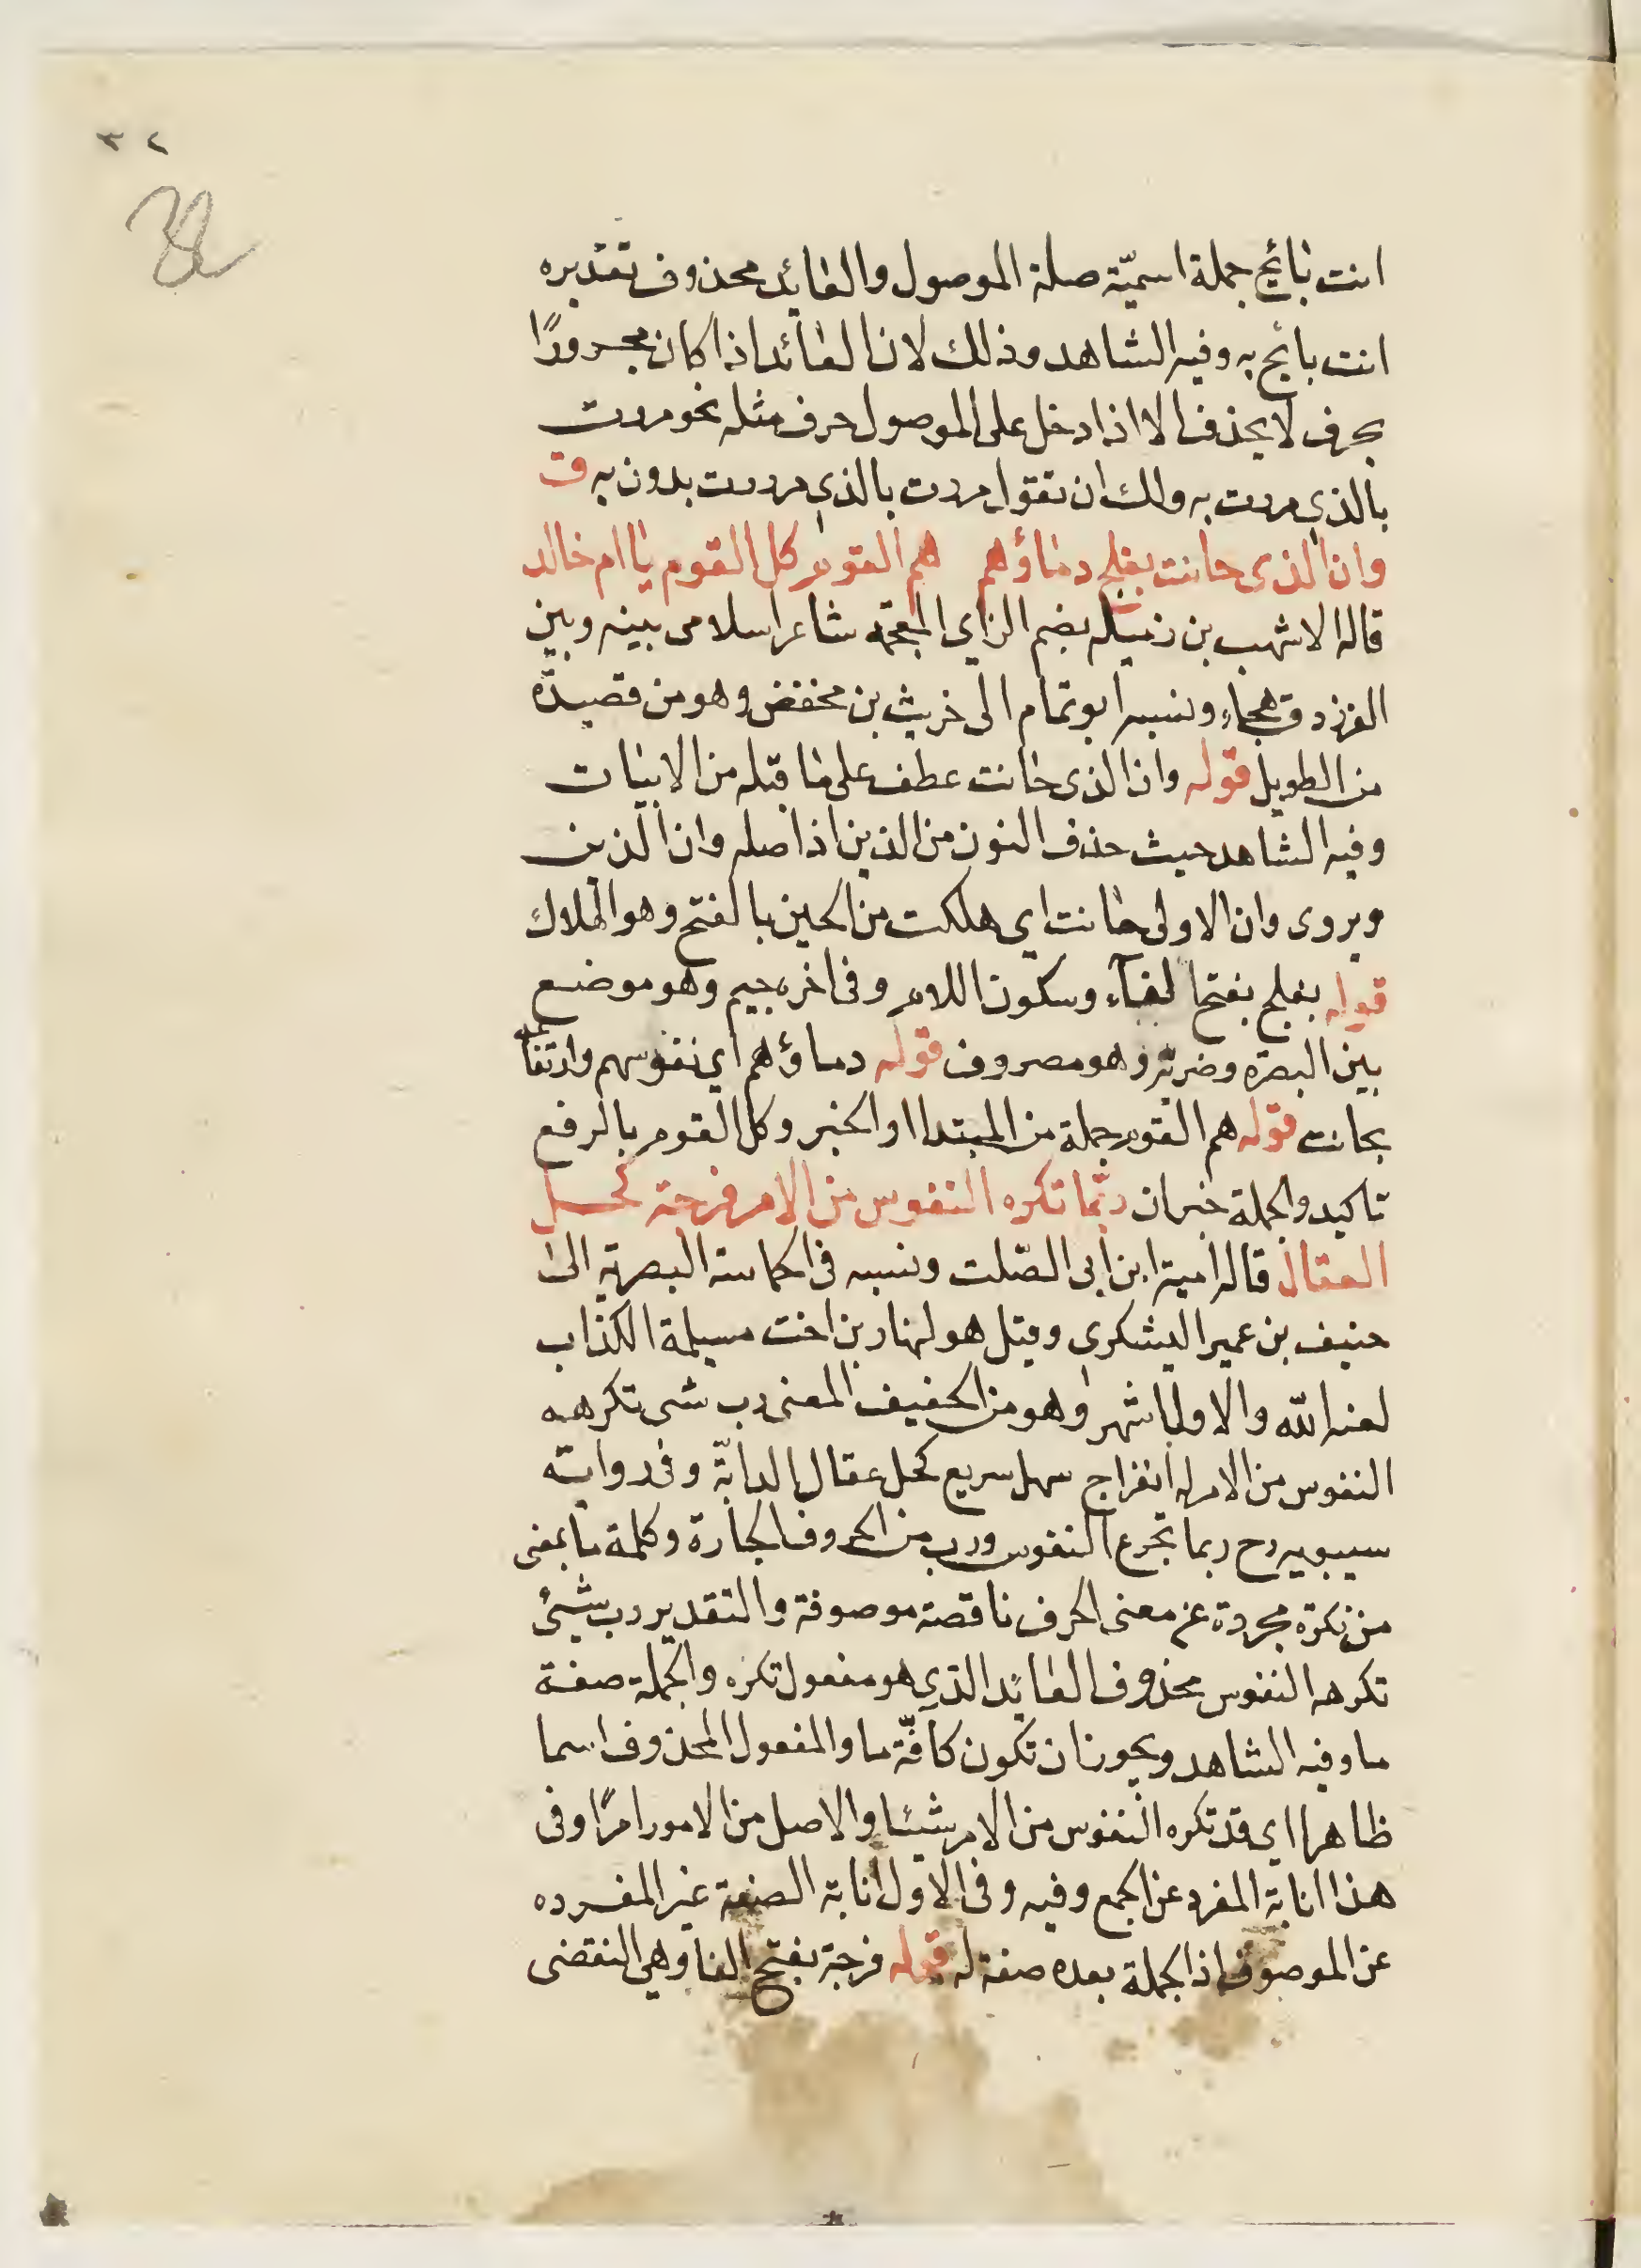 ٣٢
32
انت بائح جملة اسميّة صلة الموصول والعائد محذوف تقديره
انت بائح به وفيه الشاهد وذلك لان العائد اذا كان مجرورًا
بحرف لا يحذف الا اذا دخل على الموصول حرف مثله نحو مررت
بالذي مررت به ولك ان تقول مررت بالذي مررت بدون به ق
وان الذى حانت بفلج دماؤهم هم القوم كل القوم يا ام خالد
قاله الاشهب بن زميله بضم الزاي المعجمة شاعر اسلامى بينه وبين
الفرزدق هجاء ونسبه ابو تمام الى خريث بن مخفض وهو من قصيدة
من الطويل قوله وان الذى حانت عطف على ما قبله من الابيات
وفيه الشاهد حيث حذف النون من الذين اذ اصله وان الذين
ويروى وان الاولى حانت اي هلكت من الحين بالفتح وهو الهلاك
قوله بفلج بفتح الفآء وسكون اللام وفى اخره جيم وهو موضع
بين البصرة وضريّة وهو مصروف قوله دماؤهم اي نفوسهم وارتفاعه
بحانت قوله هم القوم جملة من المبتدا او الخبر وكل القوم بالرفع
تاكيد والجملة خبران ربّما تكره النفوس من الامر فرجة كحل
العقال قاله امية ابن ابى الصّلت ونسبه فى الحماسة البصرية الى
حنيف بن عمير اليشكرى وقيل هو لنهار بن اخت مسيلمة الكذاب
لعنه الله والاول اشهر وهو من الخفيف المعنى رب شى تكرهه
النفوس من الامر له انفراج سهل سريع كحل عقال الدابّة وفى رواية
سيبويه رح ربما تجزع النفوس ورب من الحروف الجارة وكلمة ما بمعنى
من نكرة مجردة عن معنى الحرف ناقصة موصوفة والتقدير رب شيئ
تكرهه النفوس محذوف العائد الذي هو مفعول تكره والجملة صفة
ما وفيه الشاهد ويجوز ان تكون كآفّة ما والمفعول المحذوف اسما
ظاهرا اي قد تكره النفوس من الامر شيئا والاصل من الامور امرًا وفى
هذا انابة المفرد عن الجمع وفيه وفى الاول انابة الصفة غير المفرده
عن الموصوف اذ الجملة بعده صفة له قوله فرجة بفتح الفا وهى التقضى